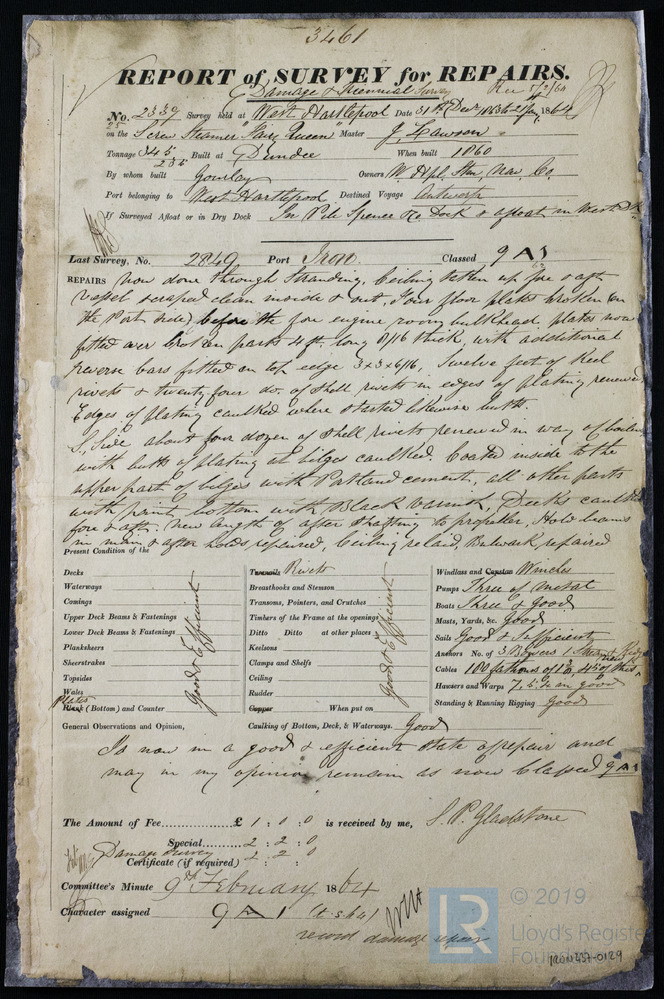 3461
REPORT of SURVEY for REPAIRS.
Damage & Triennial Survey Rec 5/2/64
No. 2339 Survey held at West Hartlepool Date 31st Decr 1863 1864
on the Screw Steamer "Fairy Queen" Master J. Lawson
Tonnage 345 Built at Dundee When built 1860
235
By whom built Gourlay Owners W. Hpl. Stm. Nav. Co.
Port belonging to West Hartlepool Destined Voyage Antwerp
If Surveyed Afloat or in Dry Dock In Pile Spence & Co Dock & afloat in West Dk
Last Survey, No. 2849 Port Iron. Classed 9 A 1
REPAIRS Now done through Stranding, Ceiling taken up fore & aft
vessel scraped clean inside & out, Four floor plates broken (on
the Port side) before the fore engine room bulkhead, plates now
fitted over broken parts 4 ft long 8/16 thick, with additional
reverse bars fitted on top edge 3 x 3 x 6/16, Twelve feet of Keel
rivets & twenty four do. of shell rivets in edges of plating renewed
Edges of plating caulked where started likewise butts.
S, Side about four dozen of shell rivets renewed in way of boiler
with butts of plating at bilges caulked. Coated inside to the
upper part of bilges with Portland cement, all other parts
with paint, bottom with Black varnish, Decks caulked
fore & aft, new length of after shafting to propeller, Hold beams
in main & after holds repaired, Ceiling relaid, Bulwark repaired
Present Condition of the
Decks
Waterways
Comings
Upper Deck Beams & Fastenings
Lower Deck Beams & Fastenings
Planksheers
Sheerstrakes
Topsides
Wales
Plates
Plank (Bottom) and Counter
Good & Efficient
Treenails Rivets
Breasthooks and Stemson
Transoms, Pointers, and Crutches
Timbers of the Frame at the openings
Ditto Ditto at other places
Keelsons
Clamps and Shelfs
Ceiling
Rudder
Copper When put on
Caulking of Bottom, Deck, & Waterways. Good
Good & Efficient
Windlass and Capstan Winches
Pumps Three of Metal
Boats Three & Good
Masts, Yards, &c. Good
Sails Good & Sufficient
Anchors No. of 3 Bowers 1 Stream & Kedge
Cables 100 fathoms of 1 3/16, 45 of this
Hawsers and Warps 7, 5 1/2 in good
Standing & Running Rigging Good
General Observations and Opinion,
Is now in a good & efficient state of repair and
may in my opinion remain as now Classed 9 A 1
The Amount of Fee £ 1 : 0 : 0 is received by me, S. P. Gladstone
Special 2 : 2 : 0
Damage Survey
Certificate (if required) 2 : 2 : 0
Committee's Minute 9th February 1864
Character assigned 9 A 1
record damage repair
LR
© 2019
Lloyd's Register
Foundation
IRON237-0129